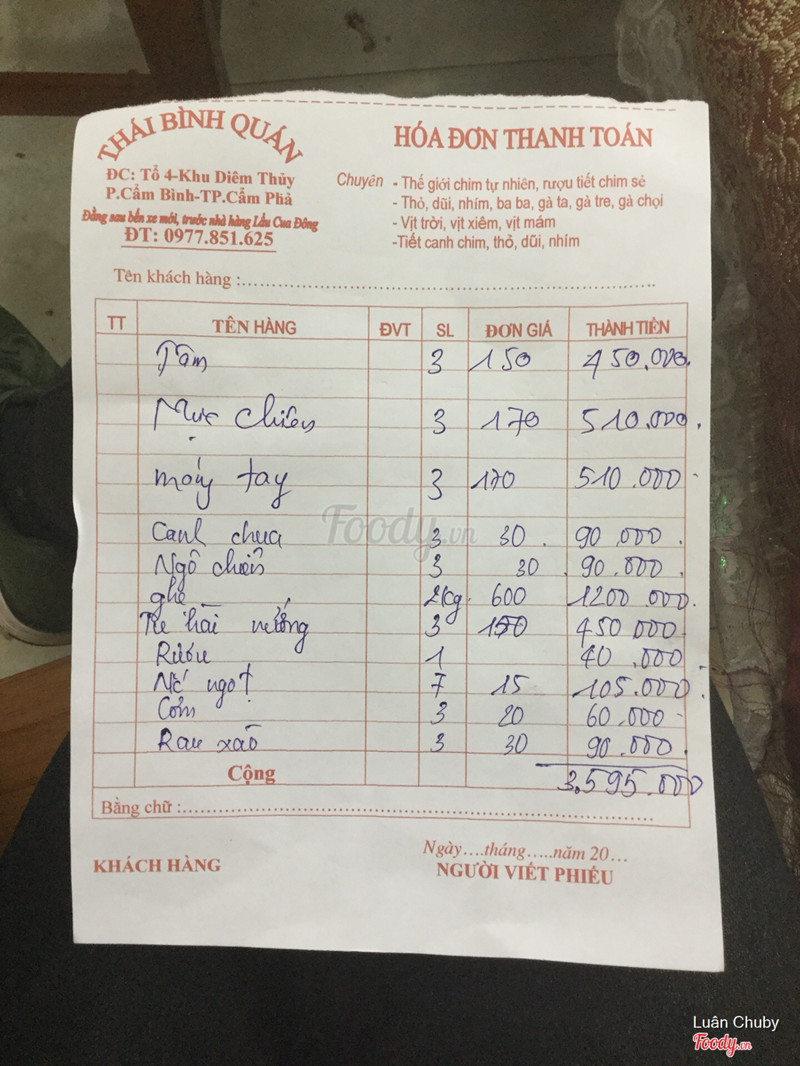 THÁI BÌNH QUÁN
ĐC: Tổ 4-Khu Diêm Thủy
P.Cẩm Bình-TP.Cẩm Phả
Đằng sau bến xe mới, trước nhà hàng Lẩu Cua Đồng
ĐT: 0977.851.625
HÓA ĐƠN THANH TOÁN
Chuyên - Thế giới chim tự nhiên, rượu tiết chim sẻ
- Thỏ, dũi, nhím, ba ba, gà ta, gà tre, gà chọi
- Vịt trời, vịt xiêm, vịt mám
-Tiết canh chim, thỏ, dũi, nhím
Tên khách hàng :
TT TÊN HÀNG ĐVT SL ĐƠN GIÁ THÀNH TIỀN
3 150 450.000.
Mực chiên 3 170 510.000.
móng tay 3 170 510.000
Canh chua 3 30. 90.000.
Ngô chiên 3 30. 90.000.
ghẹ 2kg. 600 1200.000.
Tu hài nướng 3 150 450 000
Rượu 1 40.000
Nc ngọt 7 15 105.000.
Cơm 3 20 60.000
Rau xào 3 30 90.000.
Cộng 3.595.000
Bằng chữ :
Ngày....tháng.....năm 20...
KHÁCH HÀNG NGƯỜI VIẾT PHIẾU
Foody.vn
Luân Chuby
Foody.vn